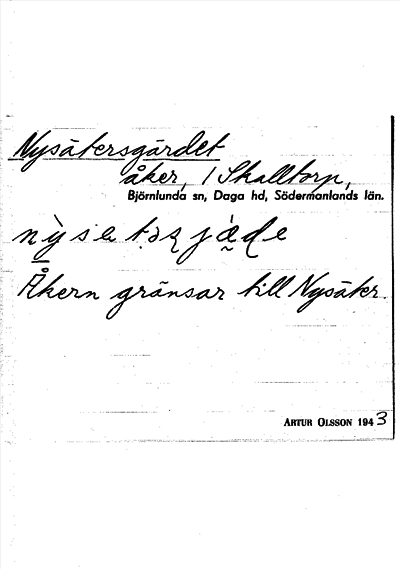 Nysätersgärdet
åker, 1 Skalltorp,
Björnlunda sn, Daga hd, Södermanlands län.
Åkern gränsar till Nysäter.
ARTUR OLSSON 1943